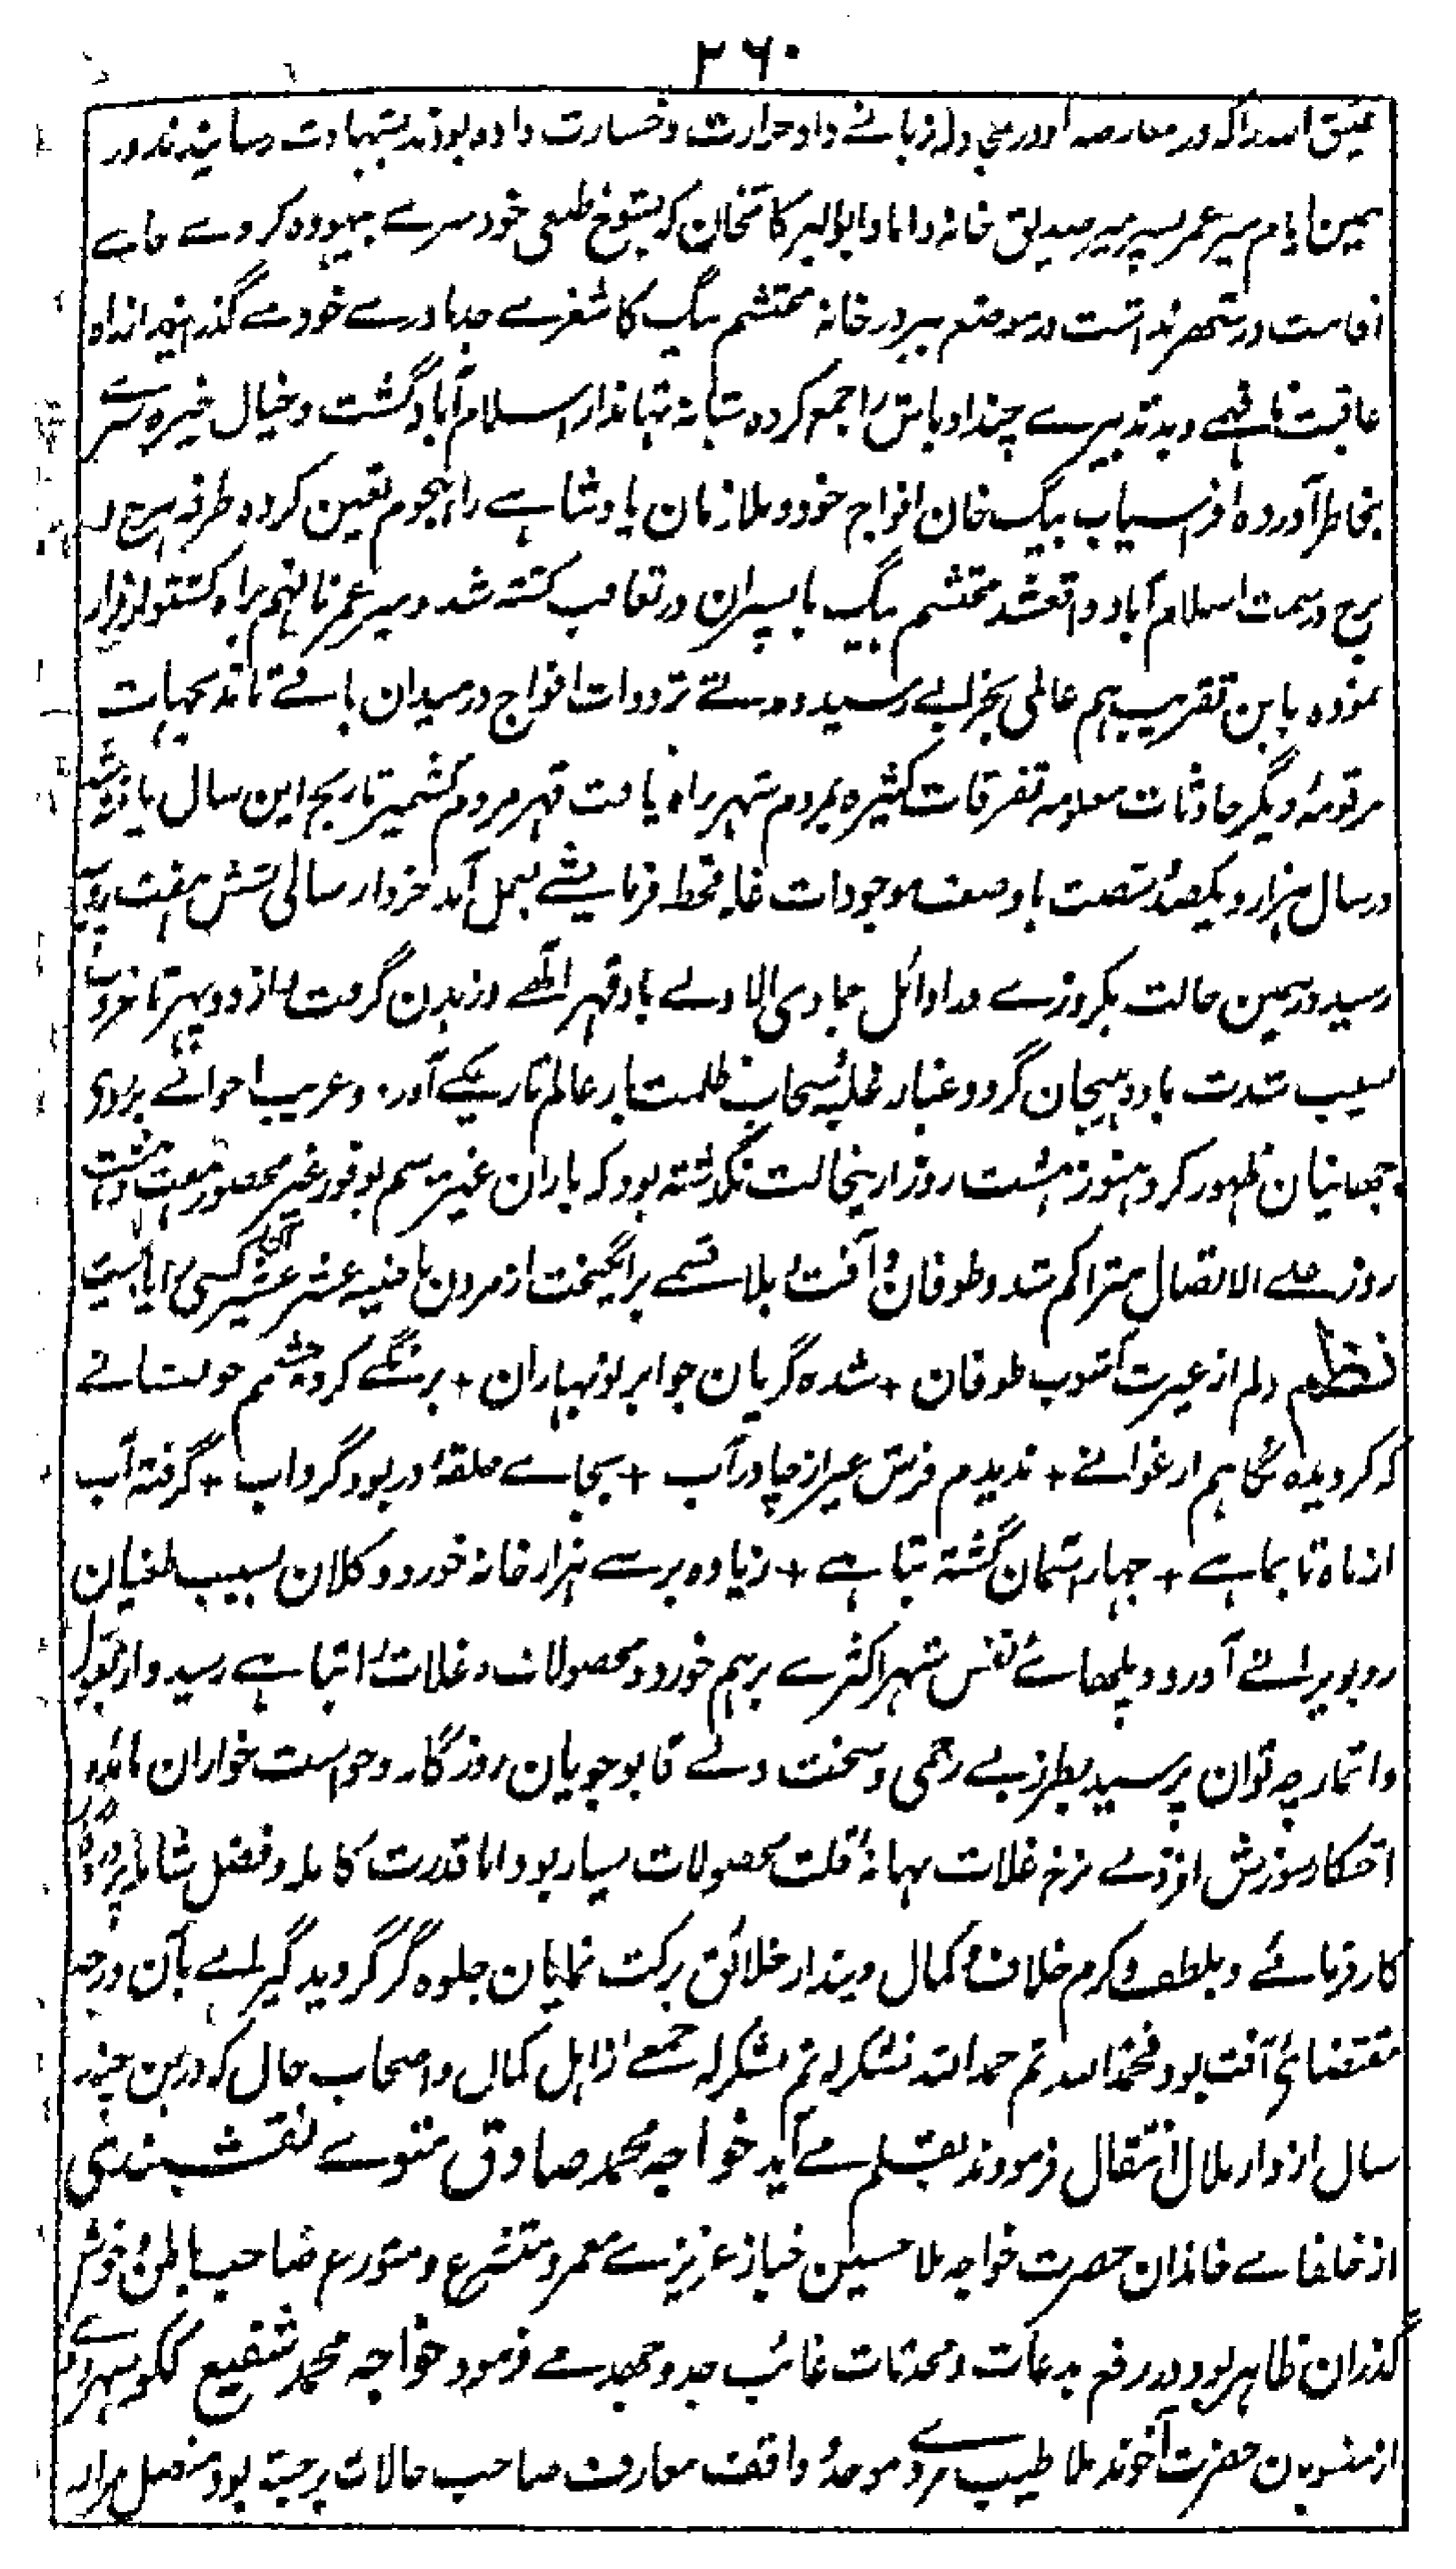 ۲۶۰
عتیق الله را که در معارضه او در مجادله زبانے داد حرارت و خسارت داده بودند بشهادت رسانیدند و در
همین ایام میر عمر پسر میر صدیق خانه داماد ابوالبرکاتخان که بشوخ طبعی خود سرے بیهوده کردے جاے
اقامت در شهر نداشت در موضع ببر در خانه محتشم بیگ کاشغرے جدا مادرے خود مے گذرانید از راه
عاقبت نافهمے و بد تدبیرے چند اوباش را جمع کرده شبانه بتهانداراسلام آباد گشت و خیال خیره سرے
بخاطر آورده افراسیاب بیگ خان افواج خود و ملازمان پادشاهے را بهجوم تعین کرده طرفه هرج و
مرج در سمت اسلام آباد واقعشد محتشم بیگ با پسران در تعاقب کشته شد و میر عمر نافهم براه کشتوار فرار
نموده باین تقریب هم عالمی بخرابے رسید و مدتے ترددات افواج درمیدان باقے ماند بجهات
مرقومه و دیگر حادثات معلومه تفرقات کثیره بمردم شهر راه یافت قهر مردم کشمیر تاریخ این سال یافته شد
در سال هزار و یکصد و شصت باوصف موجودات غله قحط فرمایشے بعمل آمد خروار شالی بشش هفت روپیه
رسید در همین حالت یکروزے در اوائل جمادی الاولے باد قهر الٰهے وزیدن گرفت از دوپهر تا غروب
بسبب شدت باد و هیجان گرد و غبار غلبه سحاب ظلمت بار عالم تاریکے آورد و غریب احوالے بر روی
جهانیان ظهور کرد هنوز هشت روز ازینحالت نگذشته بود که باران غیر موسم بوفور غیر محصور هفت هشت
روز علے الاتصال متراکم شد و طوفان آفت و بلا قسمے برانگیخت از مردن ماضیه عشر عشیر آن کسی را یاد نیست
نظم دلم از عبرت آشوب طوفان + شده گریان چو ابر نوبهاران + برنگے کرد چشمم خونفشانے
که گردیده نگاهم ارغوانے + ندیدم فرش غیر از چادر آب + بجاے حلقه در بود گرداب + گرفته آب
از ماه تا بماهے + جهان آسمان گشته تباهے + زیاده بر سے هزار خانه خورد و کلان بسبب طغیان
رو بویرانے آورد و پلهاے نفس شهر اکثرے برهم خورد و محصولات و غلات را تباهے رسید و از بقول
و اثمار چه توان پرسید بطرز بے رحمی و سخت دلے قابوجویان روزگار و خواست خواران مائده
احتکار سوزش افزوے نرخ غلات بهانه قلت محصولات بسیار بود اما قدرت کامله و فضل شامله
کارفرمائے و بلطف و کرم خلاف کمال پندار خلائق برکت نمایان جلوه گر گردید گیرائے بآن درجه
مقتضای آفت بود فحمدا لله ثم حمدا لله فشکر له ثم شکر له جمعے از اهل کمال و اصحاب حال که درین چند
سال از دار ملال انتقال فرمودند بقلم مے آید خواجه محمد صادق متوے نقشبندی
از خلفاے خاندان حضرت خواجه ملا حسین خباز عزیزے معمر و متشرع و متورع صاحب باطن خوش
گذران ظاهر بود در رفع بدعات و محدثات غائب جد و جهد مے فرمود خواجه محمد شفیع ککو سهروردے
از منسوبان حضرت آخوند ملا طیب مردے موحد واقف معارف صاحب حالات برجسته بود متصل مزار